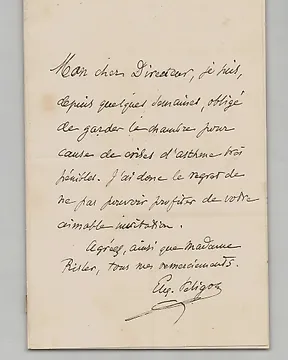 Mon cher Directeur, je suis,
depuis quelques semaines, obligé
de garder la chambre pour
cause de crises d'asthme très
pénibles. J'ai donc le regret de
ne pas pouvoir profiter de votre
aimable invitation.
Agréez, ainsi que madame
Risler, tous mes remerciements.
Eug. Péligot